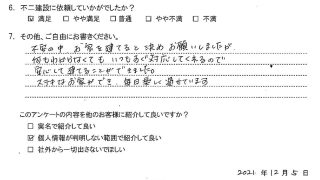 6. 不二建設に依頼していかがでしたか？
☑ 満足 □ やや満足 □ 普通 □ やや不満 □ 不満
7. その他、ご自由にお書きください。
不安の中、お家を建てると決めお願いしましたが、
何もわからなくても いつもすぐ対応してくれるので
安心して建てることができました。
ステキなお家ができ、毎日楽しく過せています
このアンケートの内容を他のお客様に紹介して良いですか？
□ 実名で紹介して良い
☑ 個人情報が判明しない範囲で紹介して良い
□ 社外から一切出さないでほしい
2021年12月5日